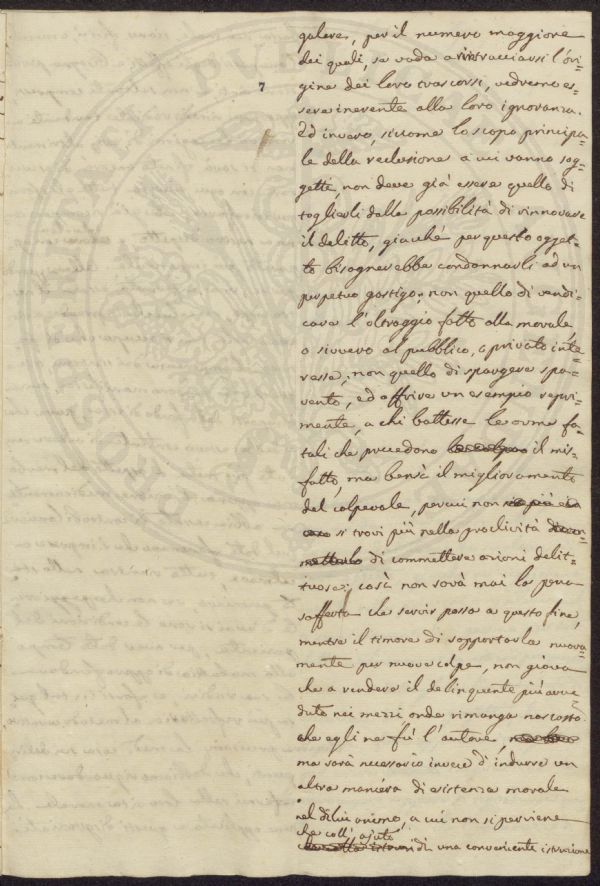 galere, per il numero maggiore
dei quali, se vada a rintracciarsi l'ori=
gine dei loro trascorsi, vedremo es=
sere inerente alla loro ignoranza.
7
Ed invero, siccome lo scopo principa=
le della reclusione a cui vanno sog=
getti, non deve già essere quello di
toglierli dalla possibilità di rinnovare
il delitto, giacché per questo ogget=
to bisognerebbe condannarli ad un
perpetuo gastigo; non quello di vendi=
care l'oltraggio fatto alla morale,
o sivvero al pubblico, o privato inte=
resse, non quello di spargere spa=
vento, ed offrire un esempio repri=
mente, a chi battesse le orme fa=
tali che precedono il mis=
fatto, ma bensì il miglioramento
del colpevole, percui non
si trovi più nella proclività
di commettere azioni delit=
tuose; così non sarà mai la pena
sofferta che servir possa a questo fine,
mentre il timore di sopportarla nuova=
mente per nuove colpe, non giova
che a rendere il delinquente più avve
duto nei mezzi onde rimanga nascosto
che egli ne fù l'autore,
ma sarà necessario invece d'indurre un
altra maniera di esistenza morale
nel di lui animo, a cui non si perviene
che coll' ajuto
di una conveniente istruzione